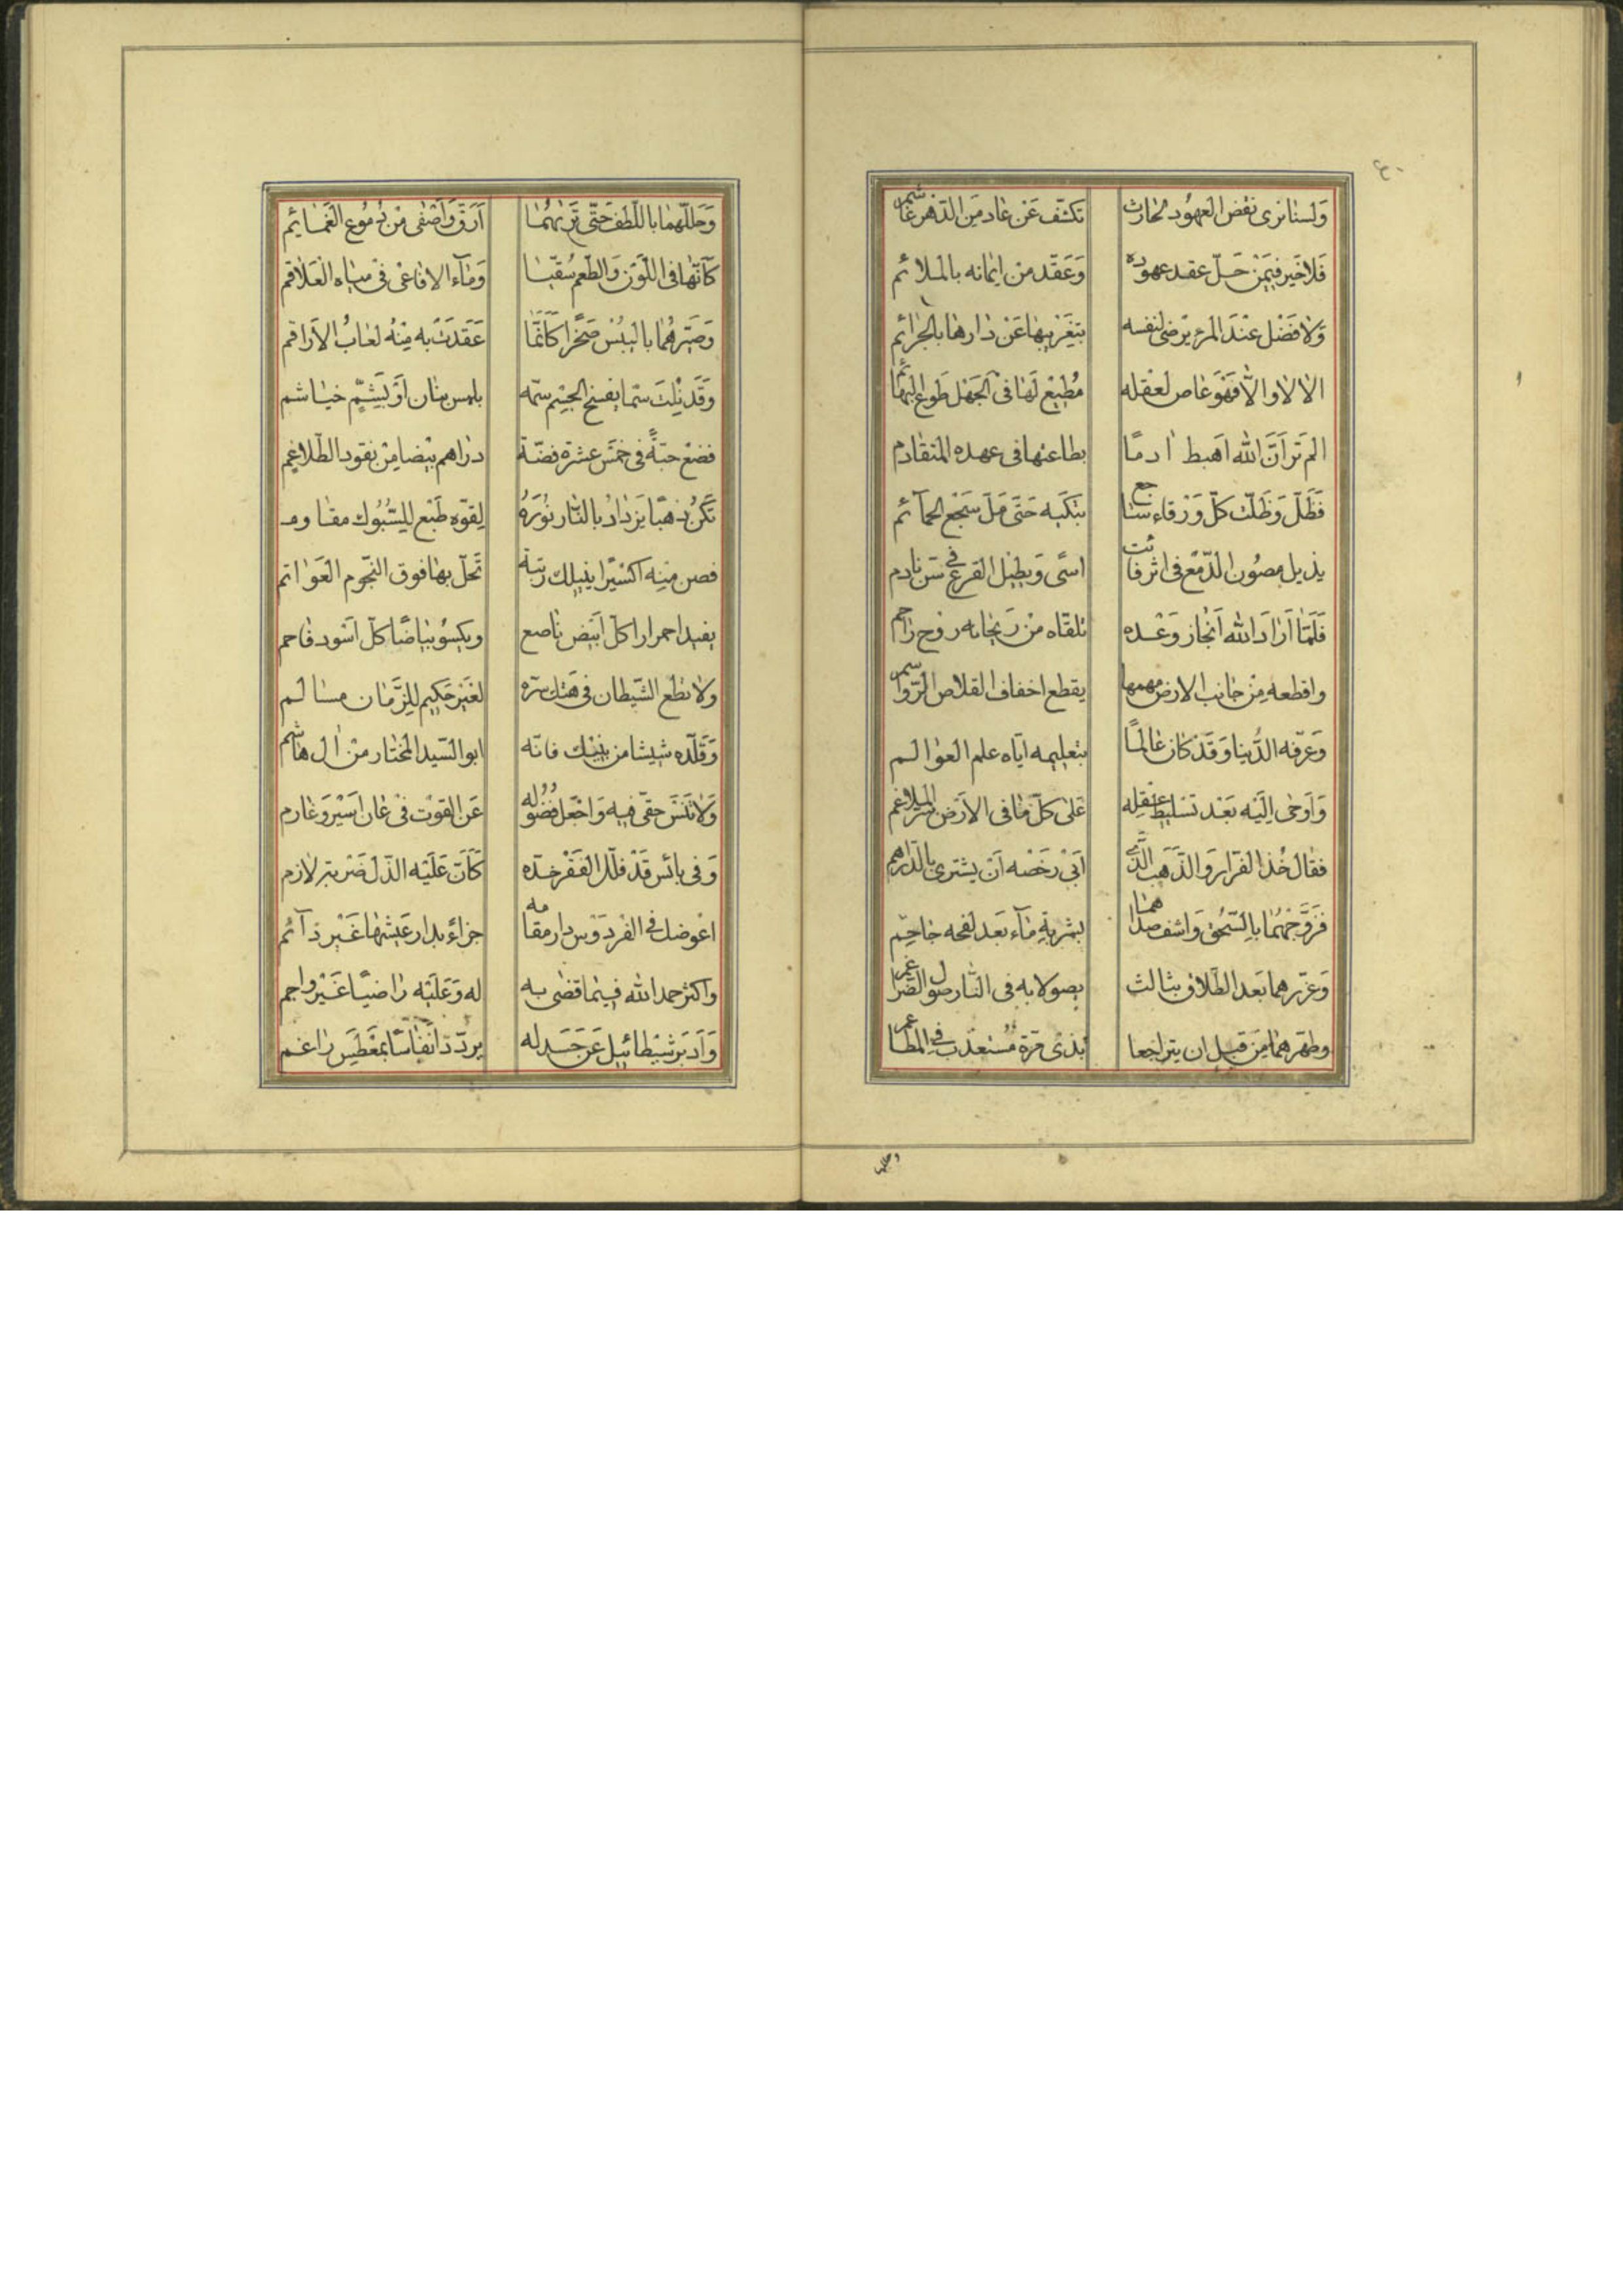 ٤٠
ولسنا نرى نقض العهود لحادث تكشف عن غاد من الدهر غاشم
فلا خير فيمن حل عقد عهوده وعقد من ايمانه بالملائم
ولا فضل عند المرء يرضى لنفسه بتغريبها عن دارها بالجرائم
الا لا ولا الا فهو عاص لعقله مطيع لها فى الجهل طوع البهائم
الم تر ان الله اهبط ادما بطاعتها فى عهده المتقادم
فظل وظلت كل ورقاء ساجع بتكبه حتى مل سجع الحمآئم
يذيل مصون الدمع فى اثر فائت اسى ويطيل القرع فى سن نادم
فلما اراد الله انجاز وعده تلقاه من ريحانه روح راحم
واقطعه من جانب الارض مهمها يقطع اخفاف القلاص الرواسم
وعرفه الدنيا وقد كان عالما بتعليمه اياه علم العوالم
واوحى اليه بعد تسليط عقله على كل ما فى الارض الملاغم
فقال خذ الفرار والذهب الذى ابى رخصه ان يشترى بالدراهم
فزوجهما بالسحق واشف صداهما بشربة مآء بعد لفحه جاحم
وعززهما بعد الطلاق بثالث يصولا به فى النار صول الضراغم
وطهرهما من قبل ان يتراجعا بذى مرة مستعذب فى المطاعم
وحللهما
وحللهما باللطف حتى تريهما ارق واصفى من دموع الغمايم
كانهما فى اللون والطعم سقيا ومآء الافاعى فى مياه العلاقم
وصيرهما باليبس صخرا كانما عقدت به منه لعاب الاراقم
وقد نيلت سما يفسخ الجسم سمه بلمس بنان او بشم خياشم
فضع حبة فى خمس عشرة فضة دراهم بيضا من نقود الطلاغم
تكن ذهبا يزداد بالنار نوره لقوه طبع للسبوك مقاوم
فصن منه اكسيرا ينيلك رتبة تحل بها فوق النجوم العواتم
يفيد احمرارا كل ابيض ناصع ويكسو بياضا كل اسود فاحم
ولا تطع الشيطان فى هتك سره لغير حكيم للزمان مسالم
وقلده شيثا من بنيك فانه ابو السيد المختار من ال هاشم
ولا تنس حقى فيه واجعل فضوله عن القوت فى عان اسير وغارم
وفى بائس قد فلل الفقر خده كان عليه الذل ضربة لازم
اعوضك فى الفردوس دار مقامه جزاء بدار عيشها غير دآئم
واكثر حمد الله فيما قضى به له وعليه راضيا غير واجم
وادبر شيطائيل عن جسد له يردد انفاسا بمغطس راغم